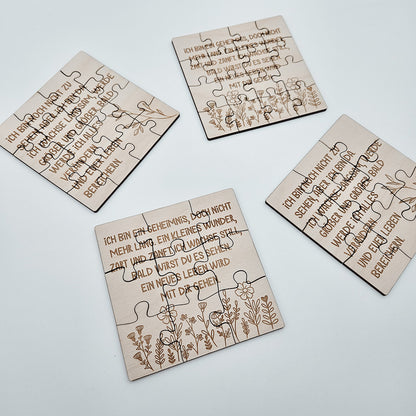 ICH BIN EIN GEHEIMNIS, DOCH NICHT
MEHR LANG. EIN KLEINES WUNDER,
ZART UND ZANFT. ICH WACHSE STILL,
BALD WIRST DU ES SEHEN,
EIN NEUES LEBEN WIRD
MIT DIR GEHEN.
ICH BIN NOCH NICHT ZU
SEHEN, ABER ICH BIN
ICH WACHSE
GRÖßER UND BALD
WERDE ICH ALLES
VERÄNDERN
UND EUER LEBEN
BEREICHERN.
ICH BIN EIN GEHEIMNIS, DOCH NICHT
MEHR LANG. EIN KLEINES WUNDER,
ZART UND ZANFT. ICH WACHSE STILL,
BALD WIRST DU ES SEHEN,
EIN NEUES LEBEN WIRD
MIT DIR GEHEN.
ICH BIN NOCH NICHT ZU
SEHEN, ABER
ICH WACHSE
GRÖßER UND BALD
WERDE ICH ALLES
VERÄNDERN
UND EUER LEBEN
BEREICHERN.